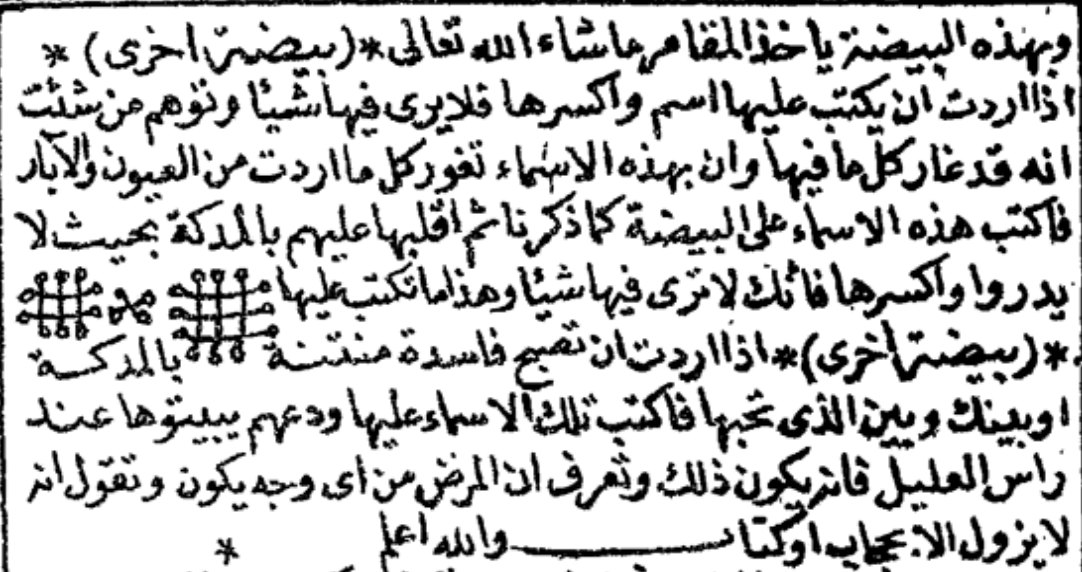 وبهذه البيضة ياخذ المقامر ماشاء الله تعالى *(بيضة اخرى) *
اذا اردت ان يكتب عليها اسم واكسرها فلا يرى فيها شيئا وتوهم من شئت
انه قد غار كل ما فيها وان بهذه الاسماء تغور كل ما اردت من العيون والآبار
فاكتب هذه الاسماء على البيضة كما ذكرنا ثم اقلبها عليهم بالدكة بحيث لا
يدروا واكسرها فانك لا ترى فيها شيئا وهذا ما تكتب عليها
*(بيضة اخرى)* اذا اردت ان تصبح فاسدة منتنة بالمدكة
او بينك وبين الذى تحبها فاكتب تلك الاسماء عليها ودعهم يبيتوها عند
راس العليل فانه يكون ذلك وتعرف ان المرض من اى وجه يكون وتقول انه
لا يزول الا بحجاب او كتاب والله اعلم *